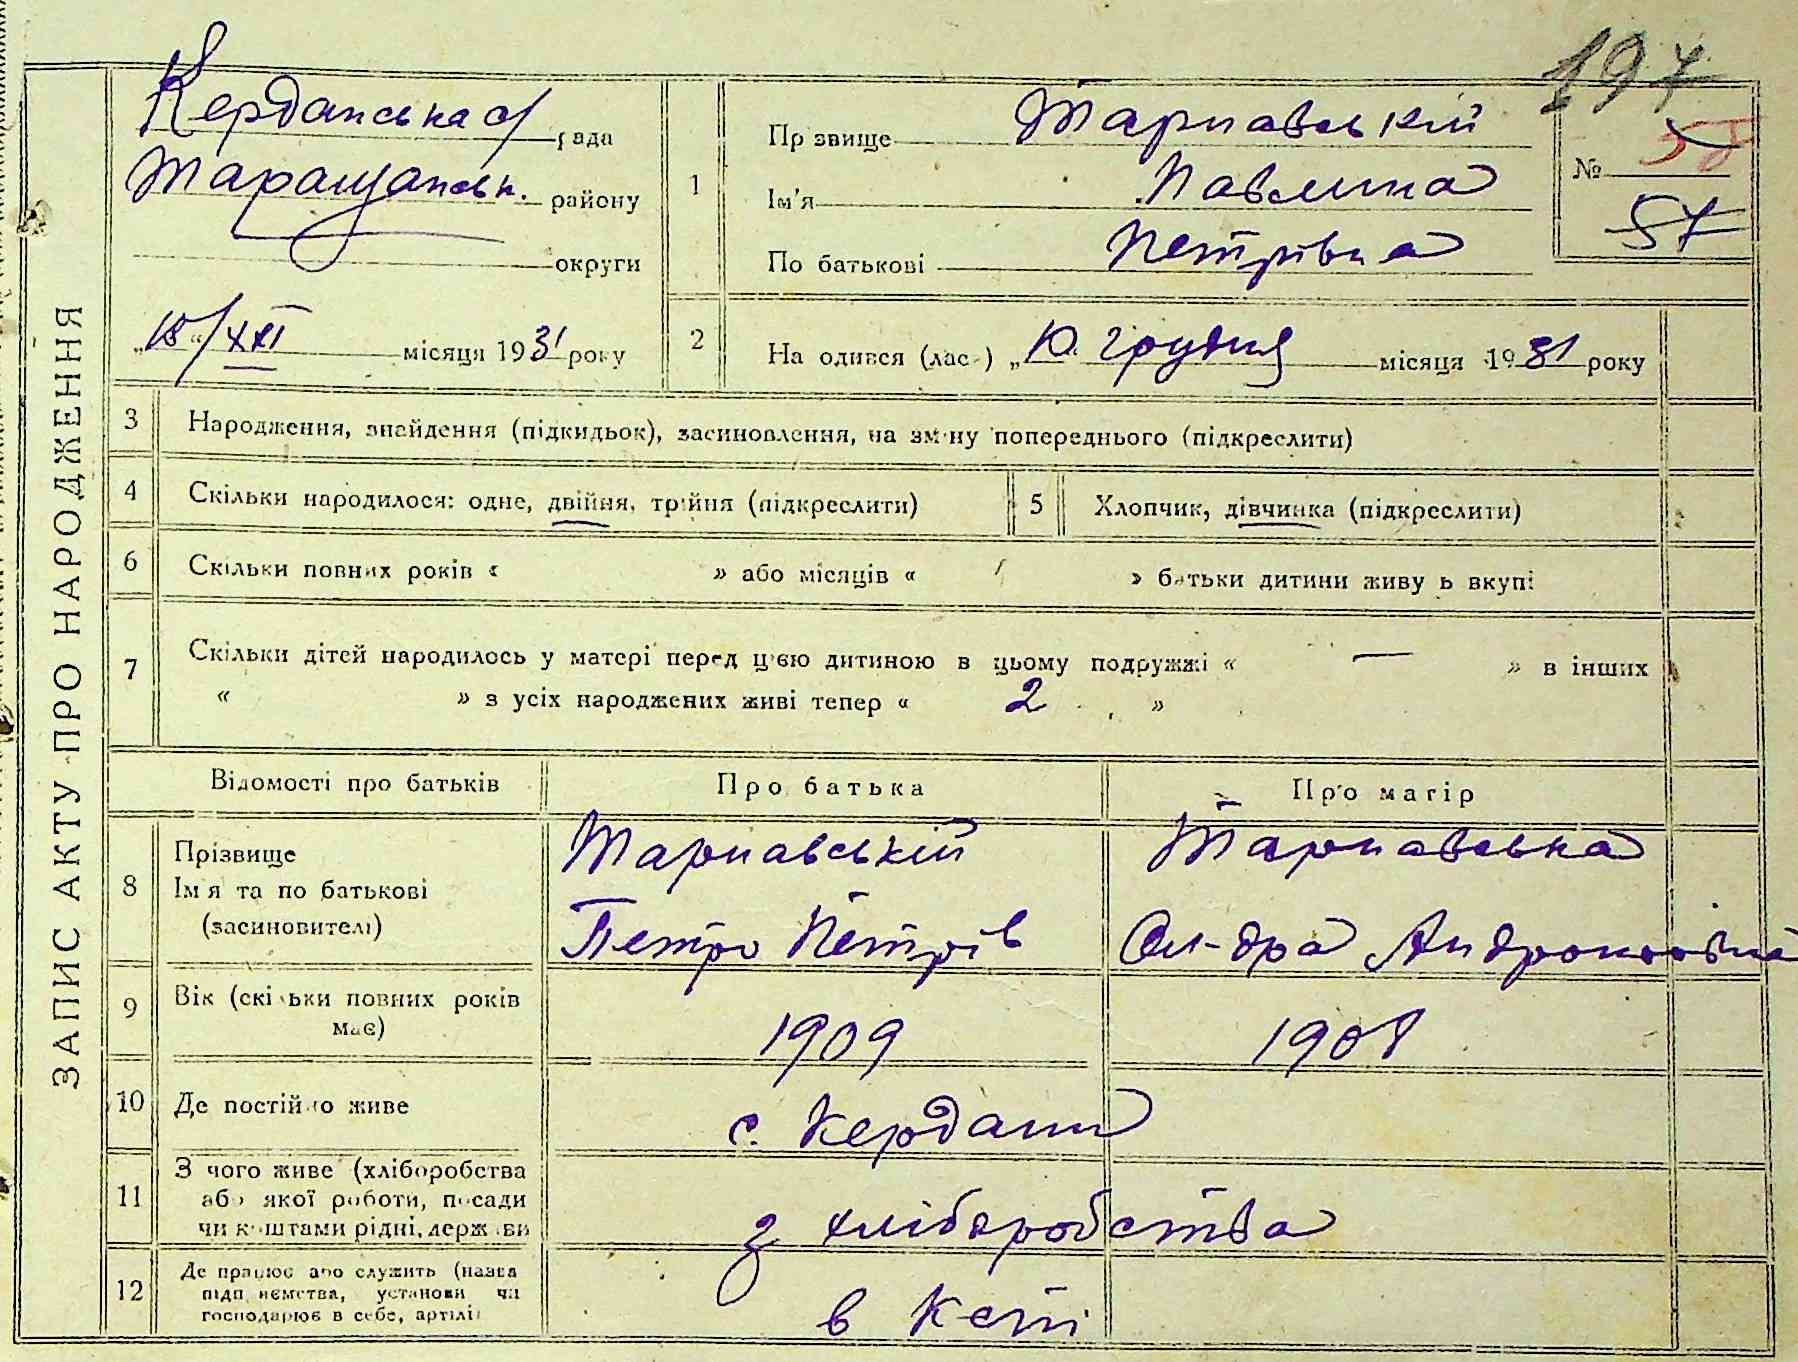 197
ЗАПИС АКТУ ПРО НАРОДЖЕННЯ
Керданська с/рада
Таращанськ. району
округи
„18“/XII місяця 1931 року
1
Прізвище Тарнавській
Ім'я Павлина
По батькові Петрівна
№ 58
57
2
На одився (лас-) „10“ грудня місяця 1931 року
3 Народження, знайдення (підкидьок), засиновлення, на зміну попереднього (підкреслити)
4 Скільки народилося: одне, двійня, трійня (підкреслити)
5 Хлопчик, дівчинка (підкреслити)
6 Скільки повних років « » або місяців « » батьки дитини живу ь вкупі
7 Скільки дітей народилось у матері перед цією дитиною в цьому подружжі « — » в інших
« » з усіх народжених живі тепер « 2 »
Відомості про батьків Про батька Про матір
8 Прізвище Тарнавській Тарнавська
Ім'я та по батькові
(засиновителі) Петро Петрів Ол-дра Андроновна
9 Вік (скільки повних років
має) 1909 1908
10 Де постійно живе с. Кердани
11 З чого живе (хліборобства
або якої роботи, посади
чи коштами рідні, держави з хліборобства
12 Де працює або служить (назва
підприємства, установи чи
господарює в себе, артілі) в